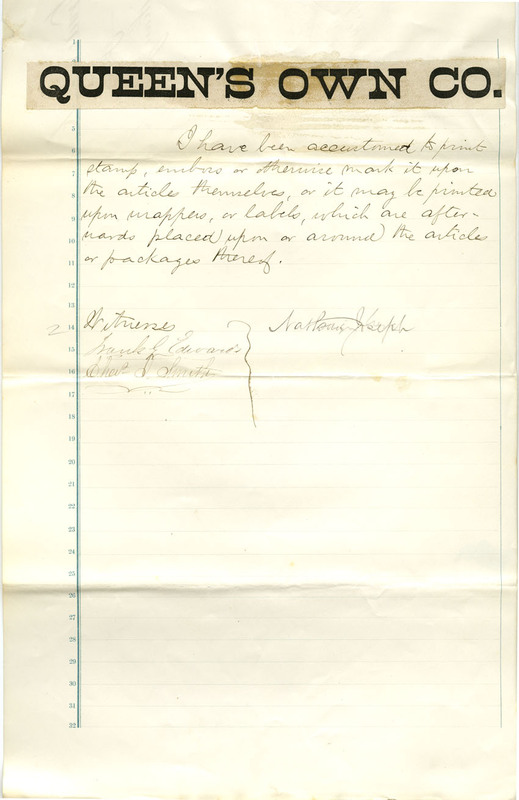 QUEEN'S OWN CO.
I have been accustomed to print
stamp, emboss or otherwise mark it upon
the articles themselves, or it may be printed
upon wrappers, or labels, which are after-
wards placed upon or around the articles
or packages thereof.
Witnesses
Nathan Joseph
Frank J. Edwards
Chas. J. Smith
5
6
7
8
9
10
11
12
13
14
15
16
17
18
19
20
21
22
23
24
25
26
27
28
29
30
31
32